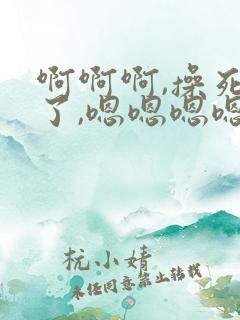 啊啊啊,操死
了,嗯嗯嗯嗯
杭小婧
未经同意禁止转载